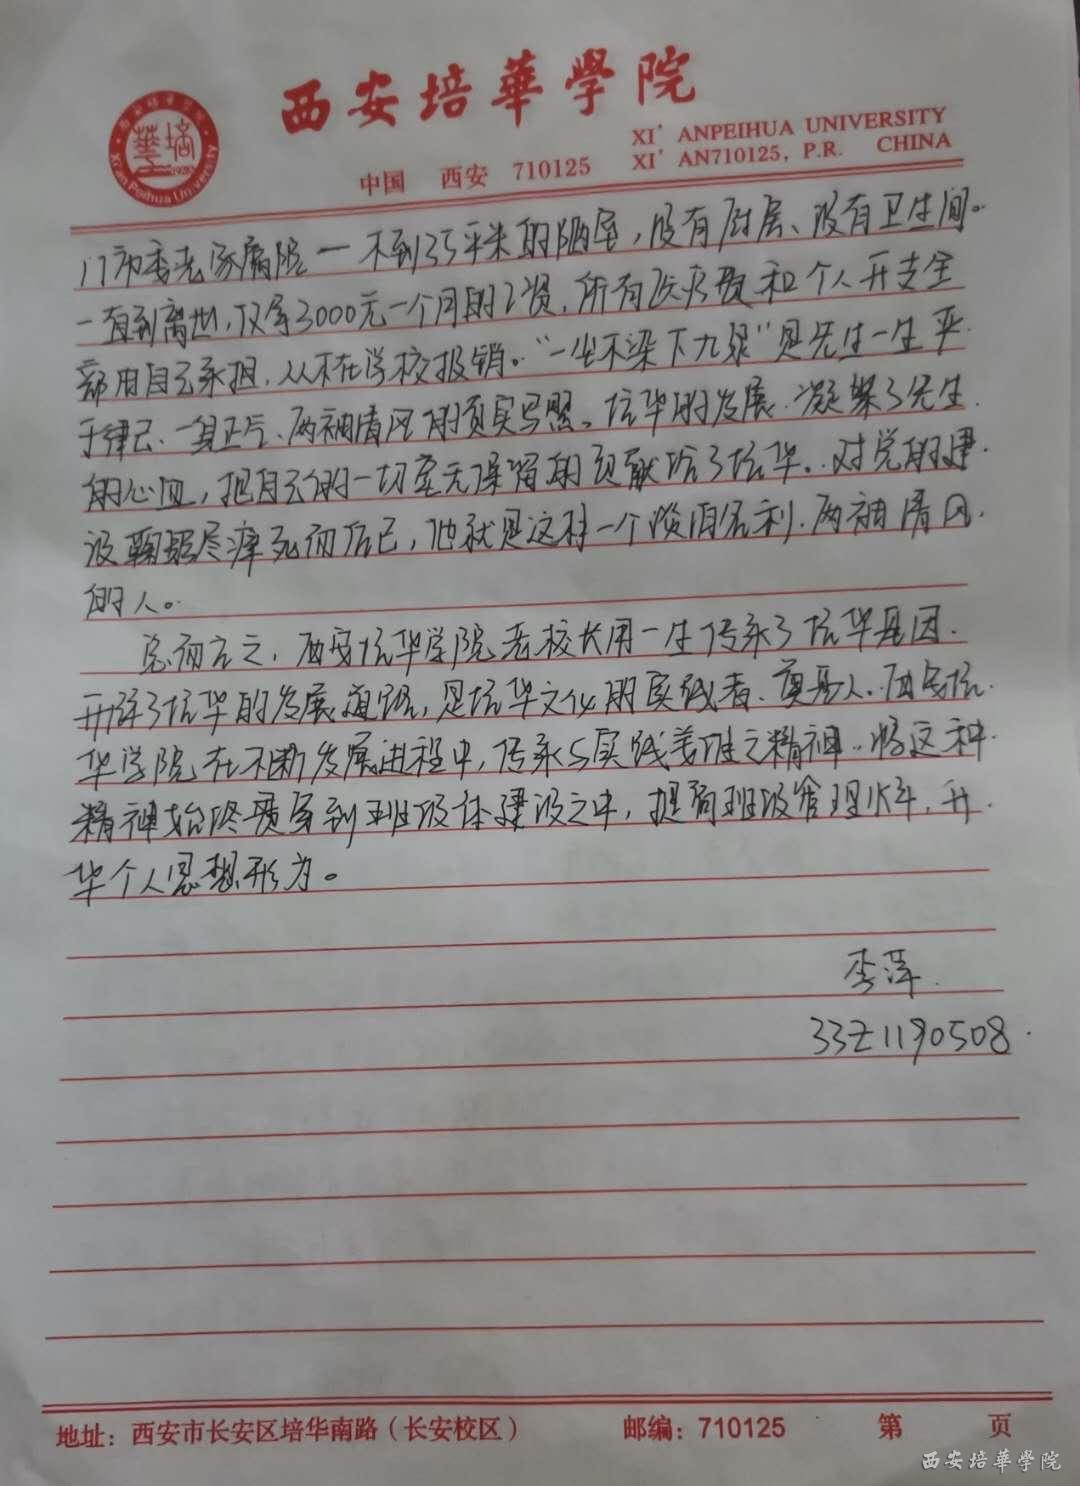 西安培華學院
XI' ANPEIHUA UNIVERSITY
中国 西安 710125 XI' AN710125, P.R. CHINA
西安培华学院
Xi'an Peihua University
1928
门市委老家属院一不到35平米的陋室，没有厨房、没有卫生间。
一直到离世，仅拿3000元一个月的工资，所有伙食费和个人开支全
部由自己承担，从不在学校报销。“一尘不染下九泉”是先生一生严
于律己、一身正气、两袖清风的真实写照。培华的发展，凝聚了先生
的心血，把自己的一切毫无保留的贡献给了培华。对党的建
设鞠躬尽瘁死而后已，他就是这样一个淡泊名利，两袖清风
的人。
总而言之，西安培华学院老校长用一生传承了培华基因，
开辟了培华的发展道路，是培华文化的实践者、奠基人。西安培
华学院在不断发展进程中，传承与实践姜维之精神，将这种
精神始终贯穿到班级体建设之中，提高班级管理水平，升
华个人思想形为。
李萍
33Z1190508
地址：西安市长安区培华南路（长安校区） 邮编：710125 第 页
西安培華學院